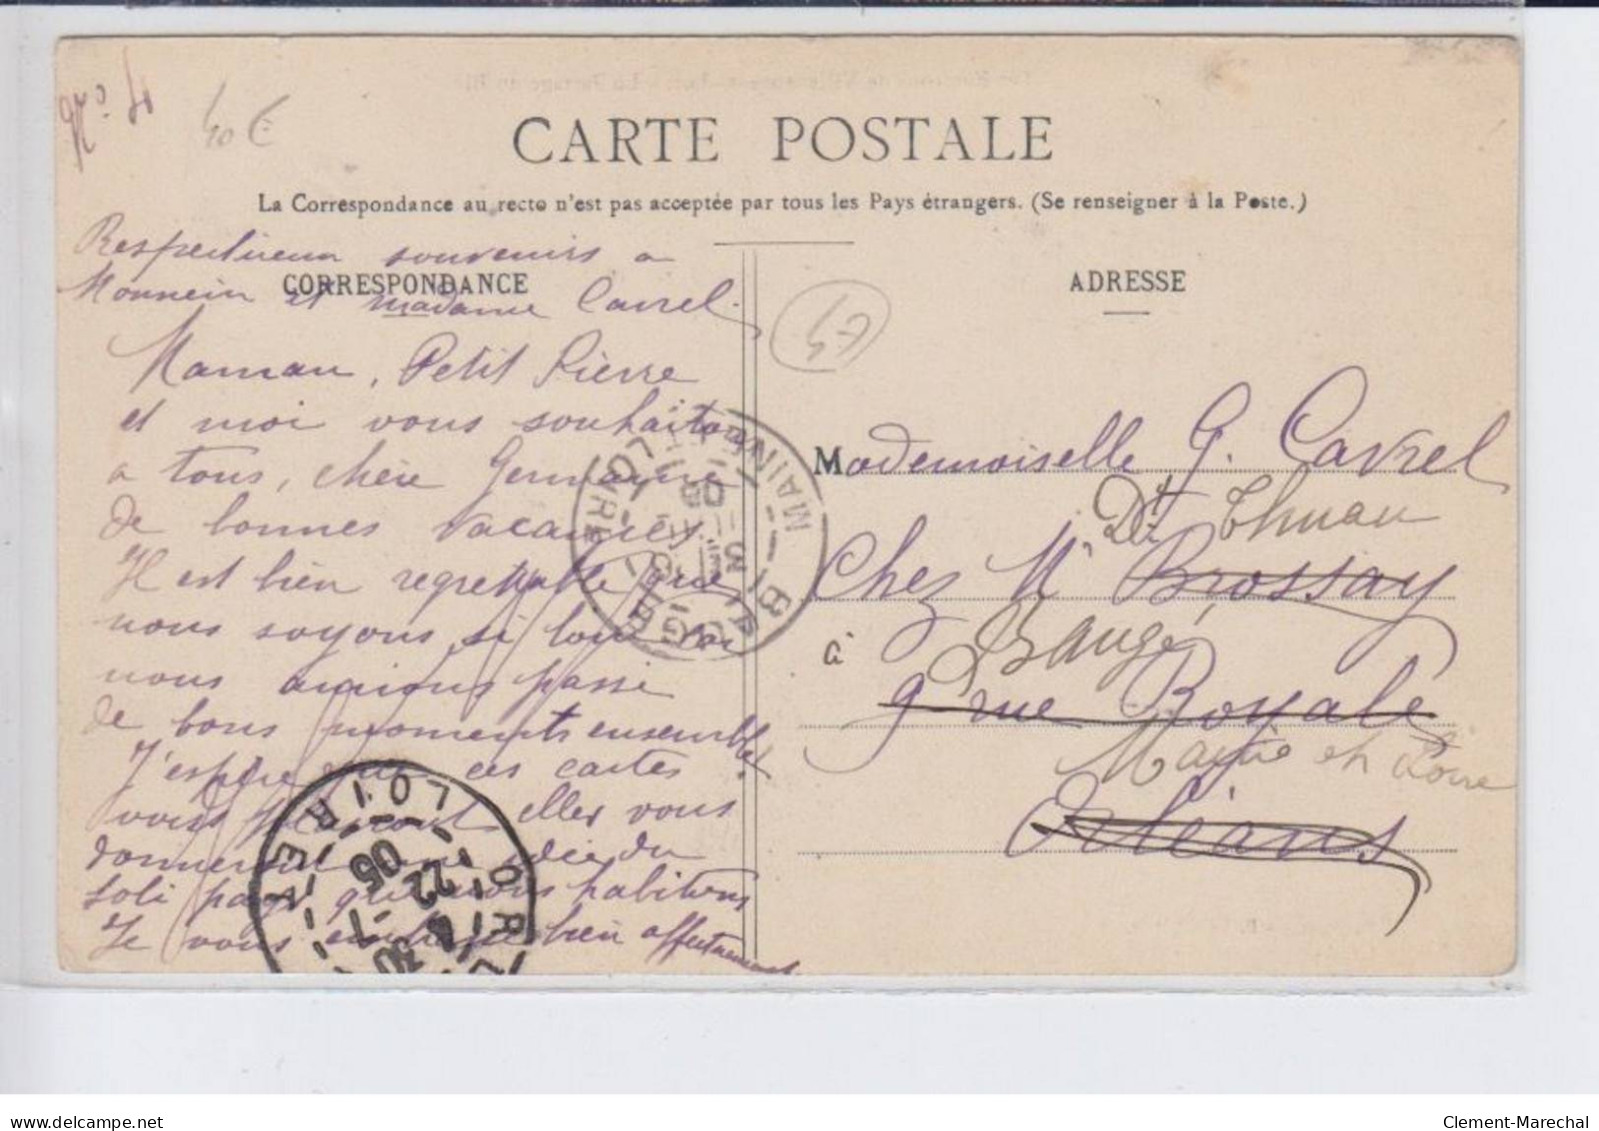 Nº 4
40 €
CARTE POSTALE
La Correspondance au recto n'est pas acceptée par tous les Pays étrangers. (Se renseigner à la Poste.)
Respectueux souvenirs a
et madame Cavrel.
CORRESPONDANCE
Maman, Petit Pierre
et moi vous souhaitons
a tous, chère Germaine
de bonnes vacances.
Il est bien regrettable que
nous soyons si loin
nous aurions passé
de bons moments ensemble.
J'espère que ces cartes
vous elles vous
donneront une idée du
joli pays que nous habitons
Je vous embrasse bien affectueusement
ADRESSE
63
Mademoiselle G. Cavrel
Dr Thuau
Chez Mr Brossay
à Baugé
9 rue Royale
Maine et Loire
Orléans
BAUGÉ
MAINE-ET-LOIRE
05
LOIRET
22
05
Clement-Marechal